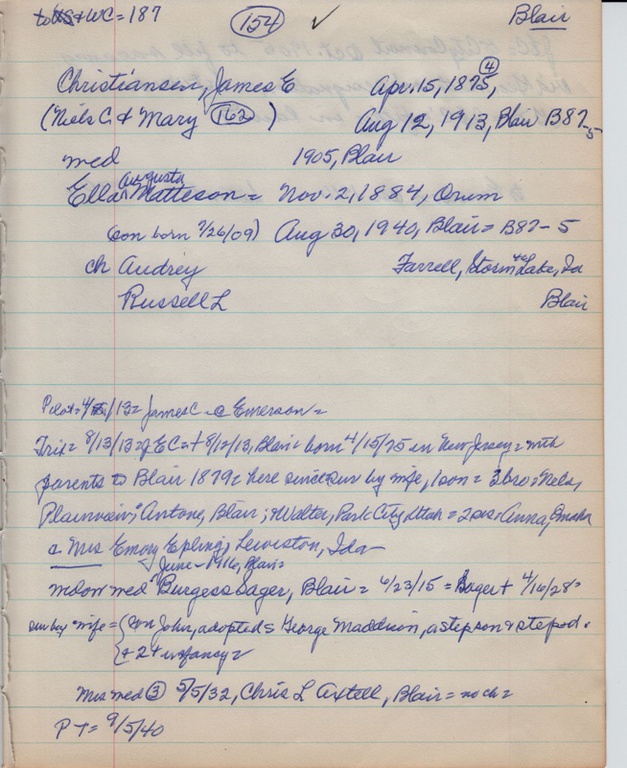 to HS + WC = 187 (154) ✓ Blair
Christiansen, James E Apr. 15, 1875, (4)
(Niels C & Mary (162)) Aug 12, 1913, Blair B87-5
med 1905, Blair
Ella Augusta Matteson = Nov. 2, 1884, Orum
(son born 7/26/09) Aug 30, 1940, Blair = B87-5
ch Audrey Farrell, Storm Lake, Ia
Russell L Blair
Pilot = /13 = James C - @ Emerson =
Trib = 8/13/13 = J E C = + 8/12/13, Blair = born 4/15/75 in New Jersey = with
parents to Blair 1879 = here since = sur by wife, 1 son = 3 bro = Nels,
Plainview; Antone, Blair; & Walter, Park City, Utah = 2 sis = Anna, Omaha
& Mrs Emory Epling, Lewiston, Ida
June - 1916, Blair =
widow med Burgess Sager, Blair = 6/23/15 = Sager + 4/16/28 =
sur by wife = {son John, adopted s George Maddison, a stepson & stepd.
{+ 2 + infancy =
Mrs med (3) 5/5/32, Chris L Axtell, Blair = no ch =
P T = 9/5/40